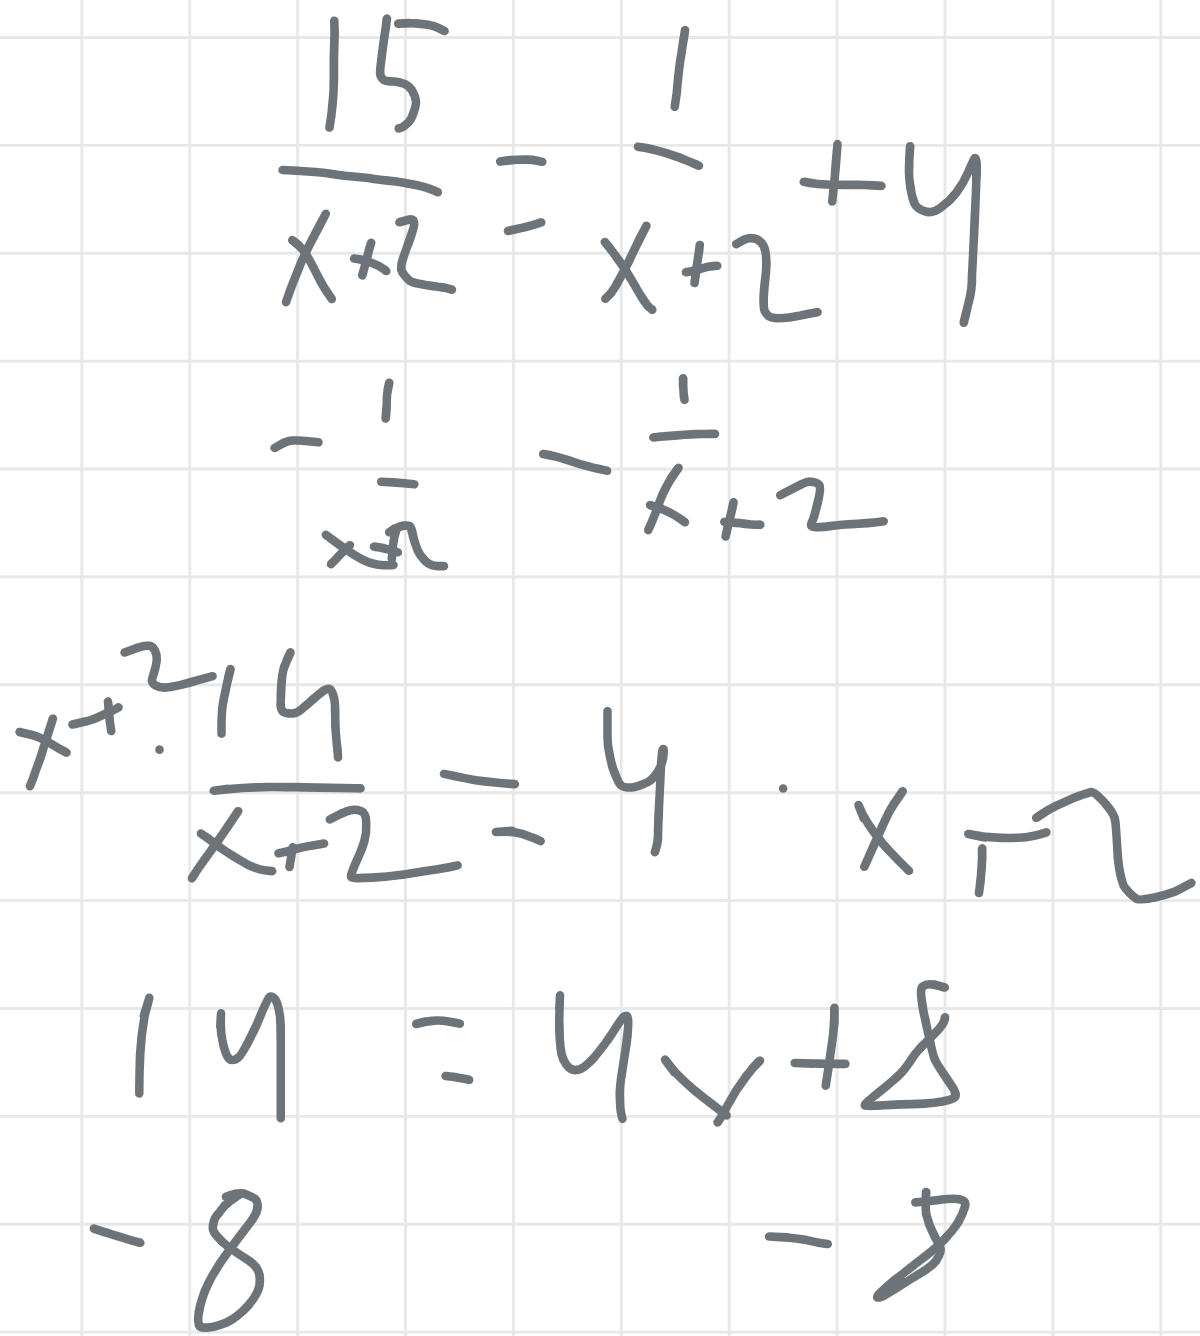 15/(x+2) = 1/(x+2) + 4
- 1/(x+2) - 1/(x+2)
x+2 · 14/(x+2) = 4 · x+2
14 = 4x + 8
- 8 - 8